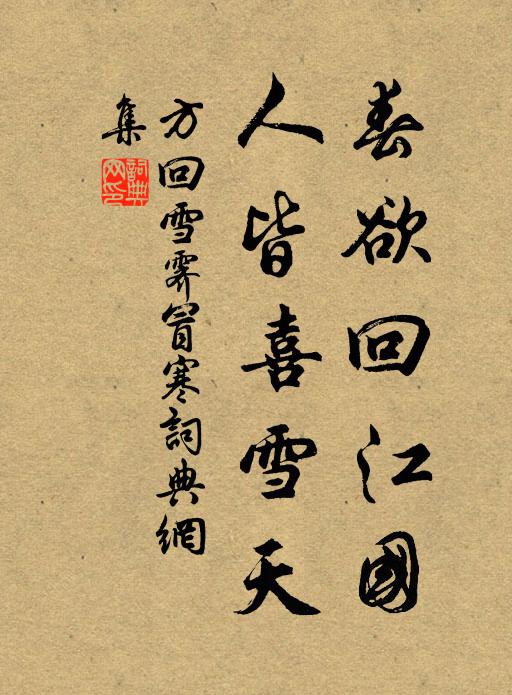 春欲回江國
人皆喜雪天
方回雪霽冒寒詞典網
集
詞典网印